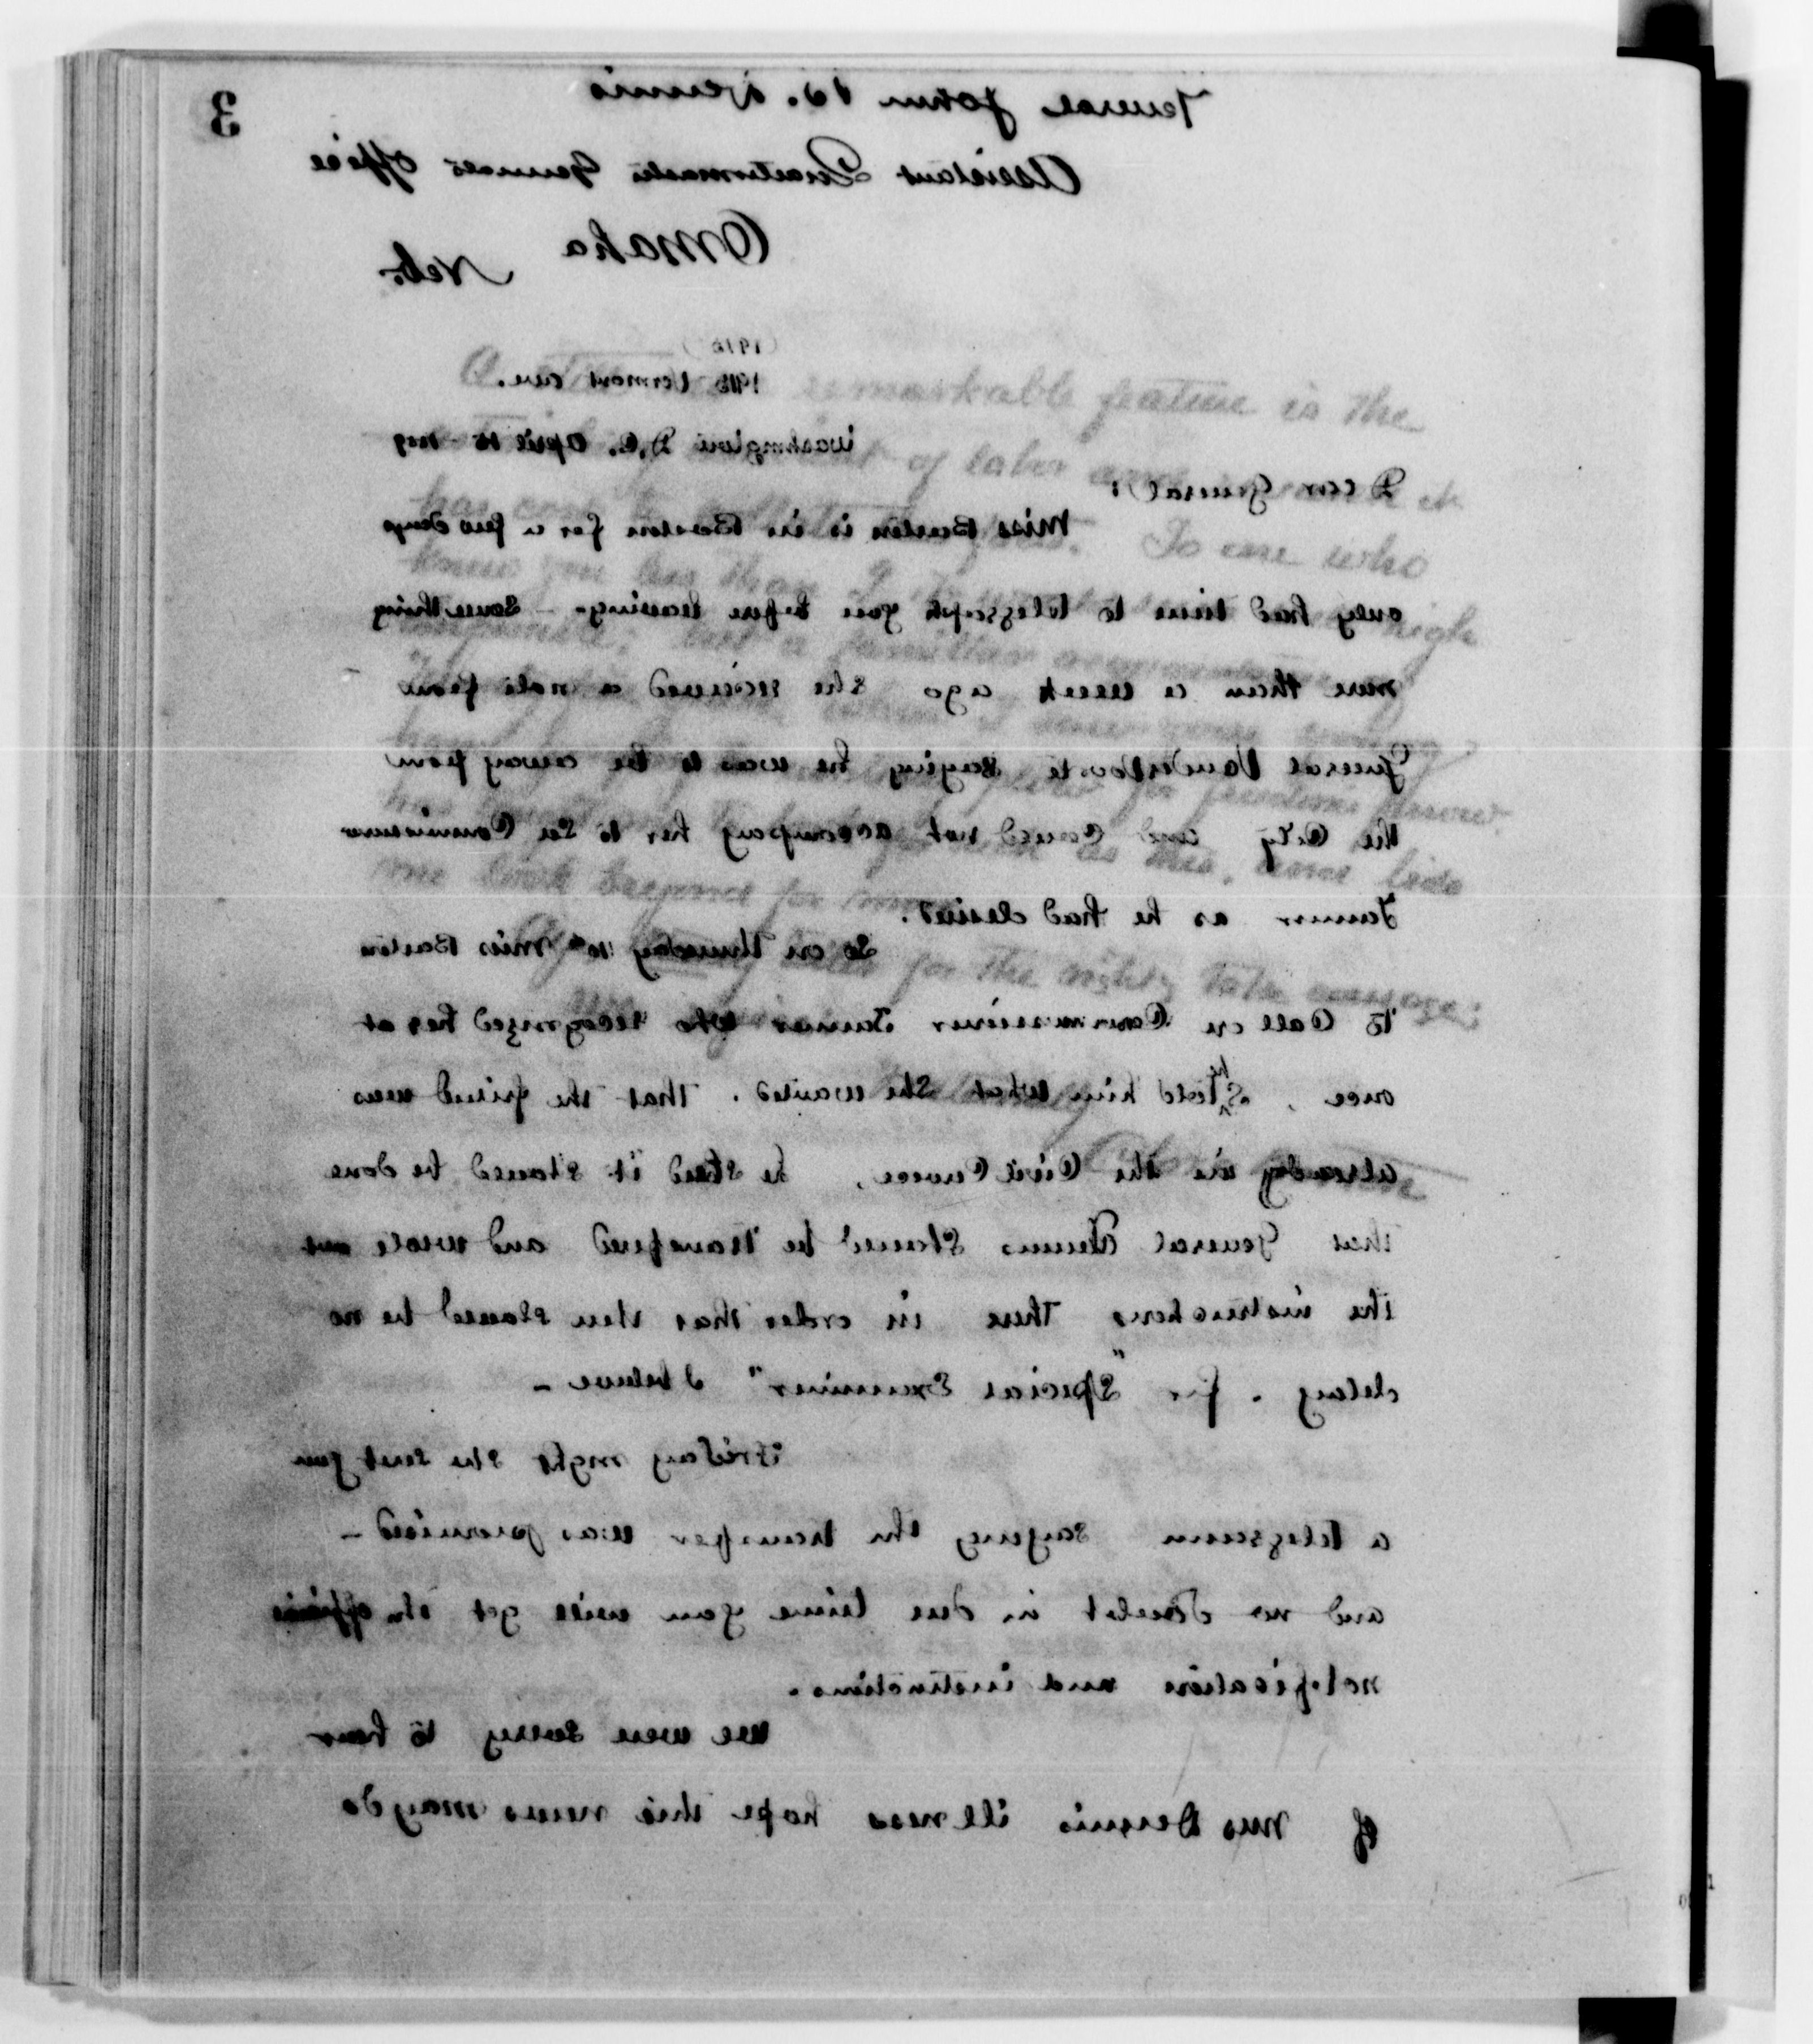 3
General John B. Dennis
Assistant Quartermaster Generals Office
Omaha
Nebr
(1915)
1915 Vermont Ave.
Washington D.C. April 15
Dear General:
Miss Barton is in Boston for a few days
only had time to telegraph you before leaving - Something
more than a week ago she received a note from
General Vandervoort saying he was to be away from
the City and Could not accompany her to See Commissioner
Tanner as he had desired.
So on Thursday Miss Barton
to Call on Commissioner Tanner who recognized her at
once, She told him what She wanted. That the friend was
already in the Civil Service, he Said it Should be done
that General Dennis Should be transfered and wrote out
the instructions there in order that there should be no
delay. for "Special Examiner" I believe -
Friday night she sent you
a telegram saying the transfer was promised -
and no doubt in due time you will get the official
notification and instructions.
We were sorry to hear
of Mrs Dennis illness hope this news may do
remarkable feature is the
of labor
To one who
high
for the